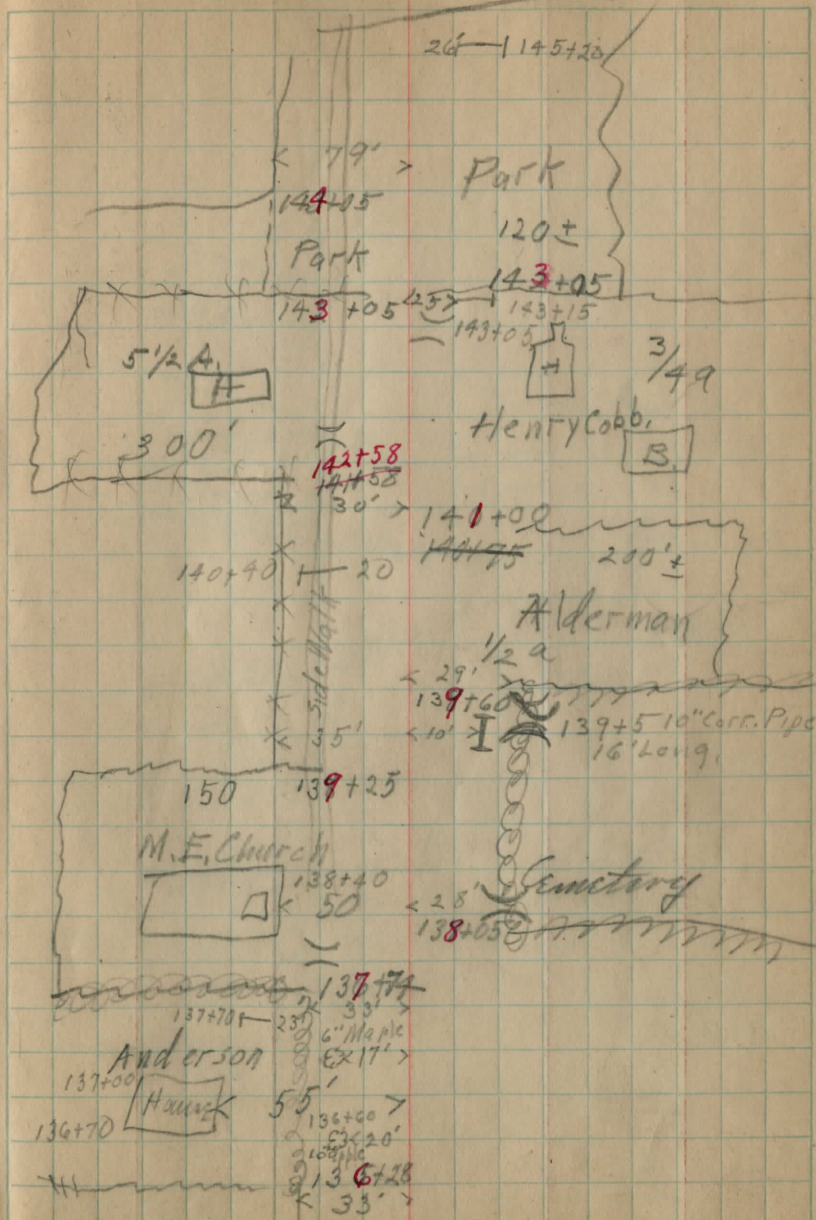 26' 145+20
< 79' >
Park
144+05
120±
Park
143+05
143+05 <25>
143+15
143+05
5 1/2 A.
H
H
3/4 a
Henry Cobb.
300'
B.
142+58
141+58
30' >
141+00
140+75
200'±
140+40 20
Alderman
1/2 a
SideWalk
< 29' >
139+60
< 35' <10' >
139+5 10" Corr. Pipe
16' Long.
150 139+25
M.E. Church
138+40
< 50
< 28'
Cemetery
138+05
137+74
< 33' >
137+70 23'
6" Maple
17' >
Anderson
137+00
House < 55' >
136+70
136+60
< 20'
136+28
< 33' >